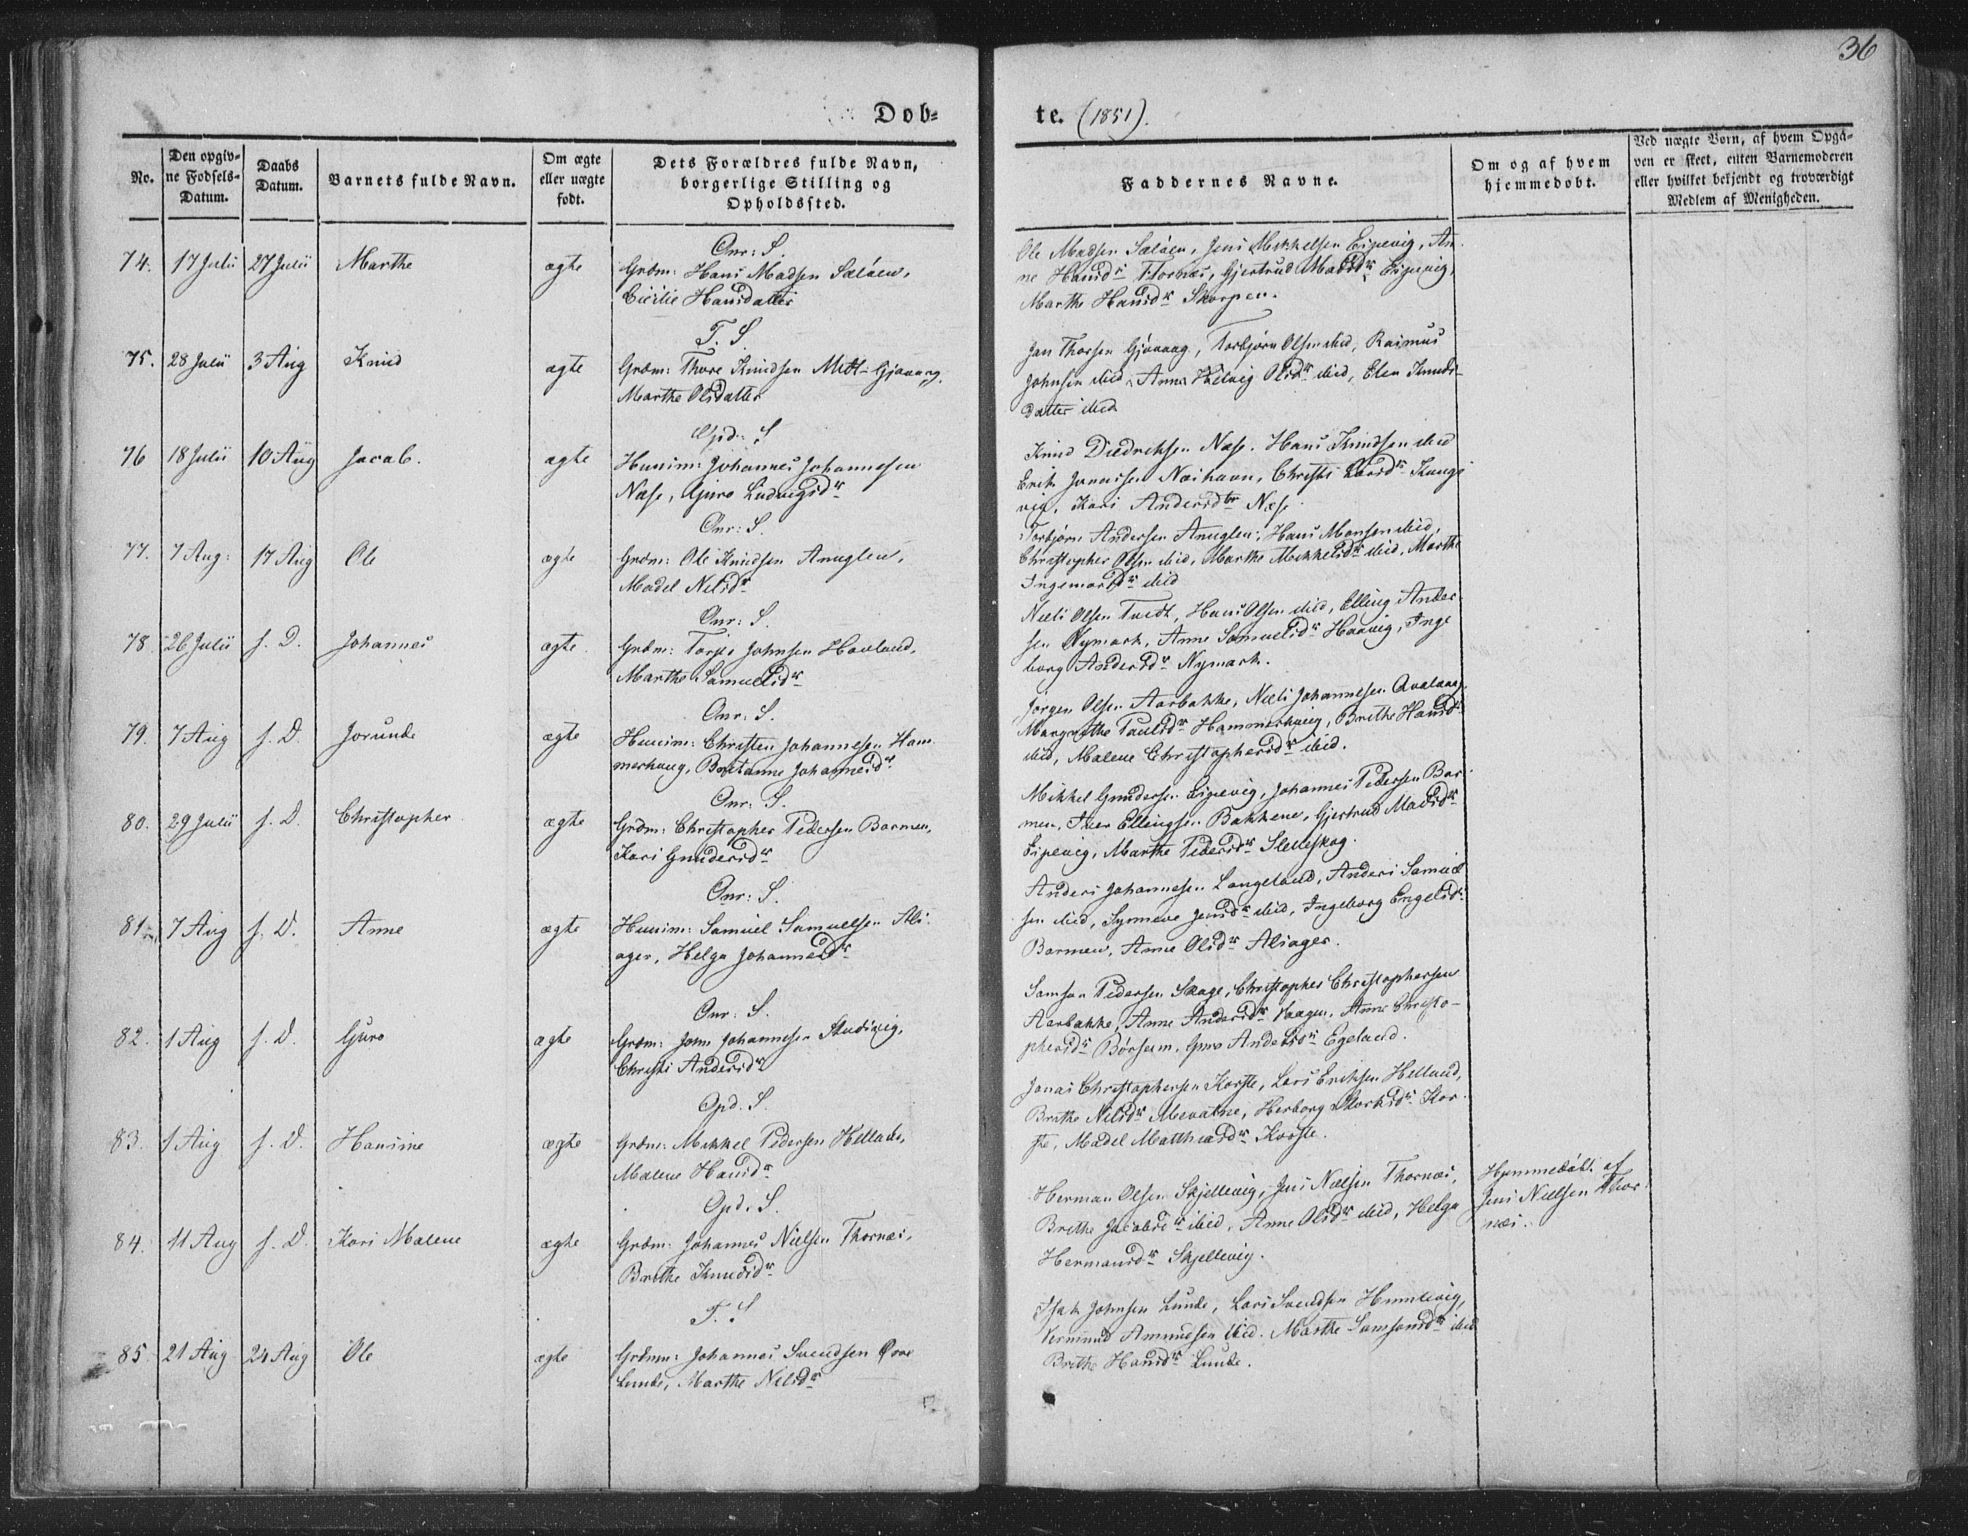 36
Døb-
te. (1851).
No.
Den opgiv-
ne Fødsels-
Datum.
Daabs
Datum.
Barnets fulde Navn.
Om ægte
eller uægte
født.
Dets Forældres fulde Navn,
borgerlige Stilling og
Opholdssted.
Faddernes Navne.
Om og af hvem
hjemmedøbt.
Ved uægte Børn, af hvem Opgå-
ven er skeet, enten Barnemoderen
eller hvilket bekjendt og troværdigt
Medlem af Menigheden.
74. 17 Julii 27 Julii Marthe ægte
Onr: S.
Grdm: Hans Madsen Sæløen,
Cicilie Hansdatter
Ole Madsen Sæløen, Jens Mikkelsen Espevig, An-
ne Hansdr Thornæs, Gjertrud Madsdr Espevig,
Marthe Hansdr Skorpen.
75. 28 Julii 3 Aug Knud ægte
T. S.
Grdm: Thore Knudsen Gjøvaag,
Marthe Olsdatter
Jan Thorsen Gjøvaag, Torbjørn Olsen ibid, Rasmus
Johnsen ibid, Anna Helvig Olsdr ibid, Elen Knuds-
datter ibid
76 18 Julii 10 Aug Jacob. ægte
Opd: S
Huusm: Johannes Johannesen
Næse, Guro Ludvigsdr
Knud Diedriksen Næse. Hans Knudsen ibid
Erik Jonassen Næshavn, Christi Larsdr Kongs
vig, Kari Andersdtr Næse
77. 7 Aug: 17 Aug Ole ægte
Onr: S.
Grdm: Ole Knudsen Anuglen,
Madel Nilsdr
Torbjørn Andersen Anuglen, Hans Monsen ibid,
Christopher Olsen ibid, Marthe Mikkelsdr ibid, Marthe
Ingemarsdr ibid
78. 26 Julii s. D. Johannes ægte
Onr: S.
Grdm: Torjes Johnsen Hovland,
Marthe Samuelsdr
Niels Olsen Tvedt, Hans Olsen ibid, Elling Ander-
sen Nymark, Anne Samuelsdr Haavig, Inge
borg Andersdr Nymark.
79. 7 Aug s. D. Jorunde ægte
Onr: S.
Huusm: Christen Johannesen Ham
merhaug, Britanne Johannesdr
Jørgen Olsen Aarbakke, Niels Johannesen Qvalvaag,
Margrethe Paulsdr Hammerhaug, Brithe Hansdr
ibid, Malene Christophersdr ibid.
80. 29 Julii s. D. Christopher ægte
Onr: S.
Grdm: Christopher Pedersen Barmen,
Kari Gundersdr
Mikkel Gundersen Espevig, Johannes Pedersen Bar-
men, Iver Ellingsen Bakkene, Gjertrud Madsdr
Espevig, Marthe Pedersdr Sletteskog.
81. 7 Aug s. D. Anne ægte
Onr: S.
Huusm: Samuel Samuelsen Als
ager, Helga Johannesdr
Anders Johannesen Langeland, Anders Samuel
sen ibid, Synneve Jensdr ibid, Ingeborg Engelsdr
Barmen, Anne Olsdr Alsager.
82. 1 Aug s. D. Guro ægte
Onr: S.
Grdm: John Johannesen Skudsvig,
Christi Andersdr
Samson Pedersen Skage, Christopher Christophersen
Aarbakke, Anne Andersdr Vaagen, Anne Christo-
phersdr Børseim, Guro Andersdr Egeland.
83. 1 Aug s. D. Hansine ægte
Opd. S.
Grdm: Mikkel Pedersen Helland,
Malene Hansdr
Jonas Christophersen Korste, Lars Eriksen Helland,
Brithe Nilsdr Mevatne, Herborg Larsdr Kor-
ste, Madel Matthiasdr Korste.
84. 11 Aug s. D. Kari Malene ægte
Opd. S.
Grdm: Johannes Nielsen Thornæs,
Brithe Knudsdr
Herman Olsen Skjellevig, Jens Nielsen Thornæs,
Brithe Jacobsdr ibid, Anne Olsdr ibid, Helga
Hermansdr Skjellevig.
Hjemmedøbt af
Jens Nielsen Thor
næs.
85. 21 Aug 24 Aug Ole ægte
T. S
Grdm: Johannes Svendsen Øvre
Lunde, Marthe Nilsdr
Isak Johnsen Lunde, Lars Svendsen Humlevig,
Vermund Amundsen ibid. Marthe Samsonsdr ibid
Brithe Hansdr Lunde.